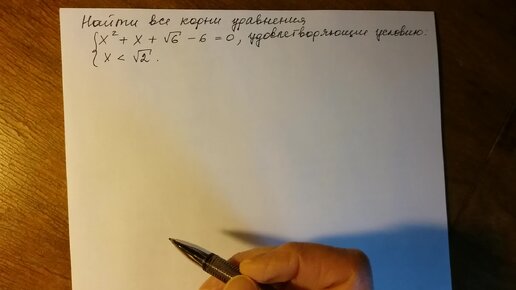 Найти все корни уравнения
{x² + x + √6 - 6 = 0, удовлетворяющие условию:
{x < √2.